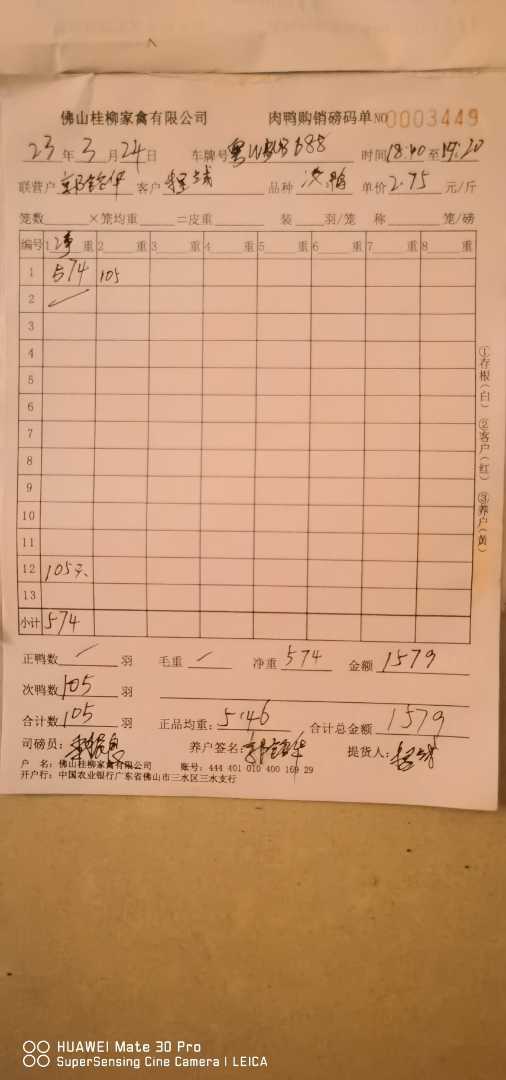 佛山桂柳家禽有限公司 肉鸭购销磅码单 NO 0003449
23 年 3 月 24 日 车牌号 粤 688 时间 18:40 至 19:20
联营户 客户 品种 次鸭 单价 2.75 元/斤
笼数 ×笼均重 =皮重 装 羽/笼 称 笼/磅
编号 1 净 重 2 重 3 重 4 重 5 重 6 重 7 重 8 重
1 574 105
2
3
4
5
6
7
8
9
10
11
12 105只
13
小计 574
①存根(白) ②客户(红) ③养户(黄)
正鸭数 羽 毛重 净重 574 金额 1579
次鸭数 105 羽
合计数 105 羽 正品均重: 5.46 合计总金额 1579
司磅员: 养户签名: 提货人:
户 名: 佛山桂柳家禽有限公司 账号: 444 401 010 400 169 29
开户行: 中国农业银行广东省佛山市三水区三水支行
HUAWEI Mate 30 Pro
SuperSensing Cine Camera | LEICA